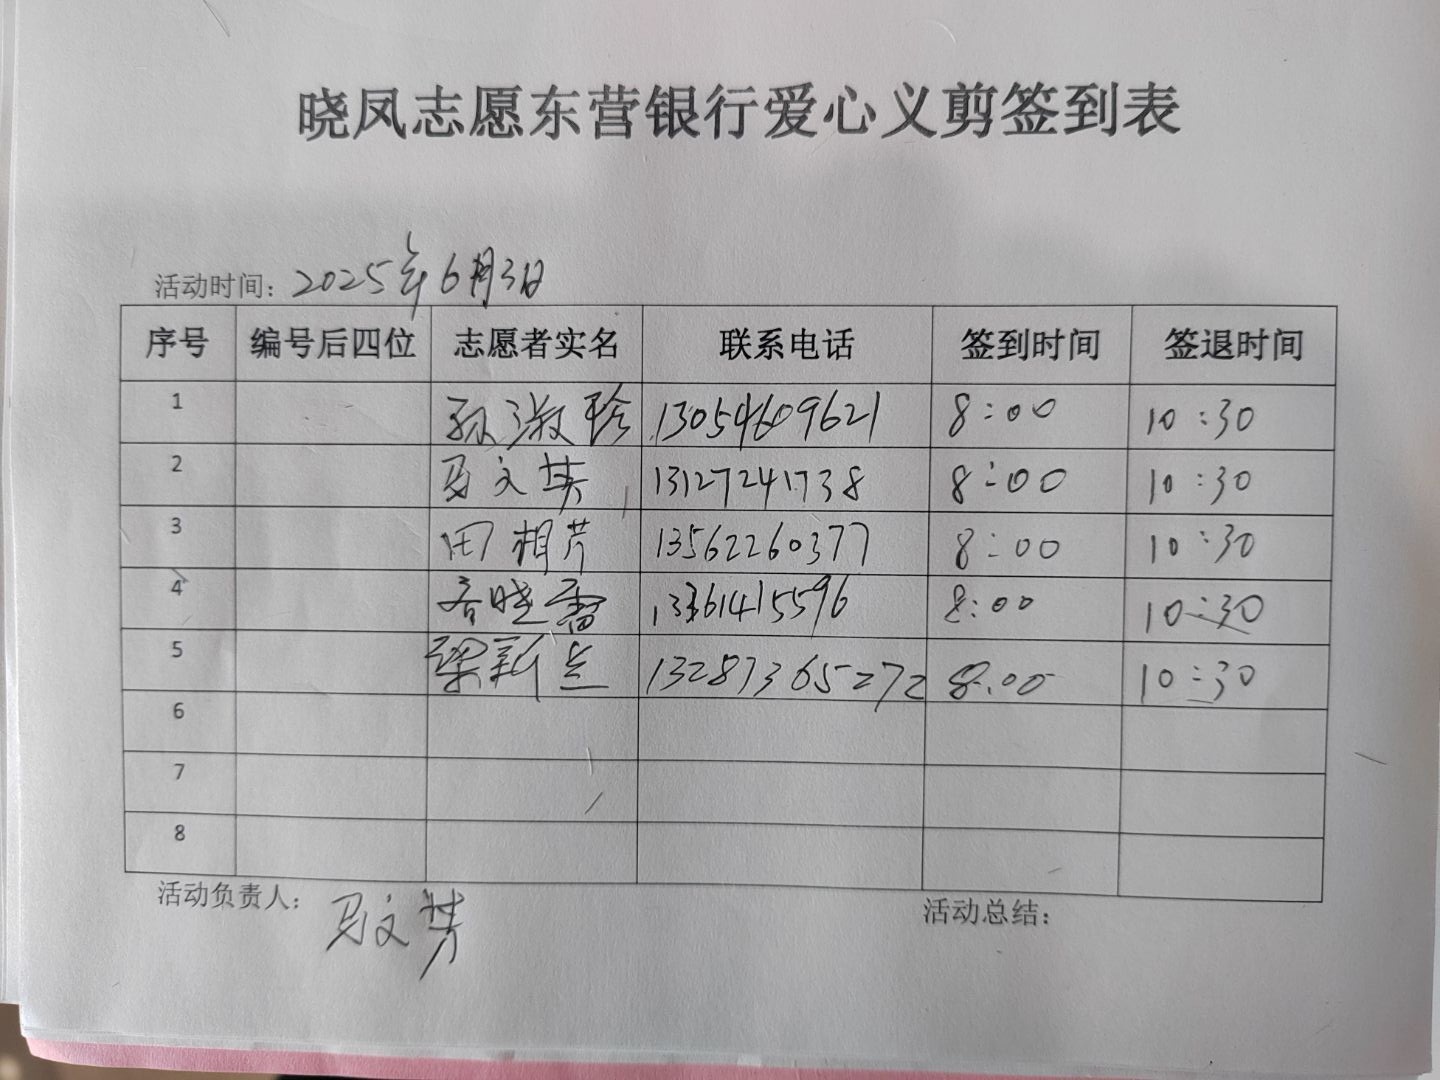 晓凤志愿东营银行爱心义剪签到表
活动时间：2025年6月3日
序号 编号后四位 志愿者实名 联系电话 签到时间 签退时间
1 孙淑珍 13054609621 8:00 10:30
2 马文英 13127241738 8:00 10:30
3 田相芹 13562260377 8:00 10:30
4 齐晓霞 13361415596 8:00 10:30
5 梁新兰 13287365272 8:00 10:30
6
7
8
活动负责人：马文英 活动总结：